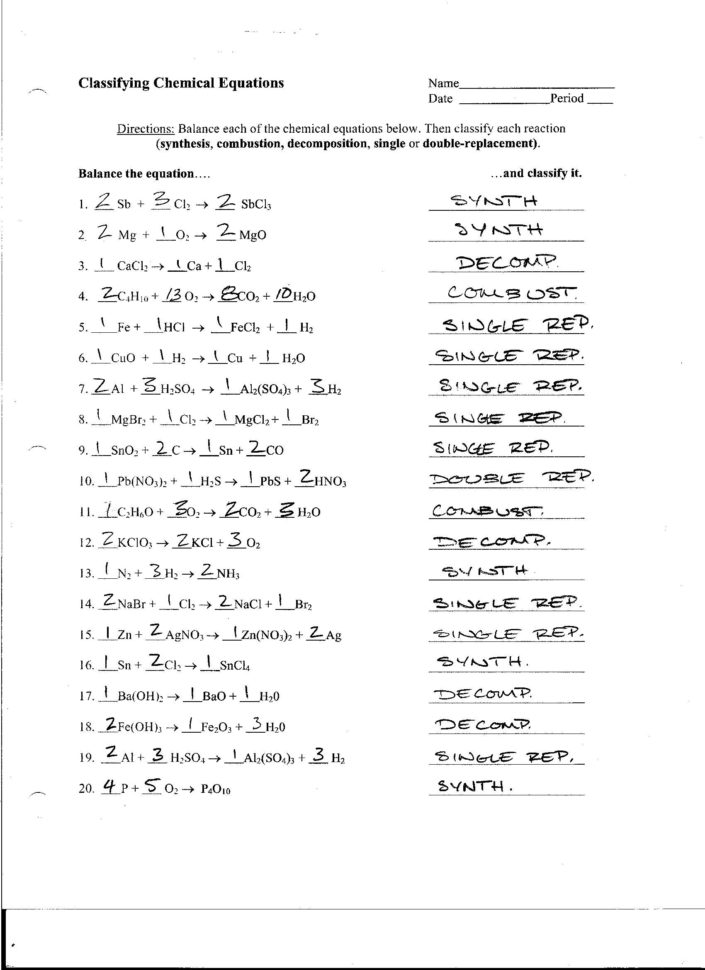 Classifying Chemical Equations Name____________
Date ____________Period ____
Directions: Balance each of the chemical equations below. Then classify each reaction
(synthesis, combustion, decomposition, single or double-replacement).
Balance the equation…. …and classify it.
1. 2 Sb + 3 Cl₂ → 2 SbCl₃ SYNTH
2 2 Mg + 1 O₂ → 2 MgO SYNTH
3. 1 CaCl₂ → 1 Ca + 1 Cl₂ DECOMP.
4. 2 C₄H₁₀ + 13 O₂ → 8 CO₂ + 10 H₂O COMBUST.
5. 1 Fe + 1 HCl → 1 FeCl₂ + 1 H₂ SINGLE REP.
6. 1 CuO + 1 H₂ → 1 Cu + 1 H₂O SINGLE REP.
7. 2 Al + 3 H₂SO₄ → 1 Al₂(SO₄)₃ + 3 H₂ SINGLE REP.
8. 1 MgBr₂ + 1 Cl₂ → 1 MgCl₂ + 1 Br₂ SINGE REP.
9. 1 SnO₂ + 2 C → 1 Sn + 2 CO SINGE REP.
10. 1 Pb(NO₃)₂ + 1 H₂S → 1 PbS + 2 HNO₃ DOUBLE REP.
11. 1 C₂H₆O + 3 O₂ → 2 CO₂ + 3 H₂O COMBUST.
12. 2 KClO₃ → 2 KCl + 3 O₂ DECOMP.
13. 1 N₂ + 3 H₂ → 2 NH₃ SYNTH
14. 2 NaBr + 1 Cl₂ → 2 NaCl + 1 Br₂ SINGLE REP.
15. 1 Zn + 2 AgNO₃ → 1 Zn(NO₃)₂ + 2 Ag SINGLE REP.
16. 1 Sn + 2 Cl₂ → 1 SnCl₄ SYNTH.
17. 1 Ba(OH)₂ → 1 BaO + 1 H₂0 DECOMP.
18. 2 Fe(OH)₃ → 1 Fe₂O₃ + 3 H₂0 DECOMP.
19. 2 Al + 3 H₂SO₄ → 1 Al₂(SO₄)₃ + 3 H₂ SINGLE REP.
20. 4 P + 5 O₂ → P₄O₁₀ SYNTH.